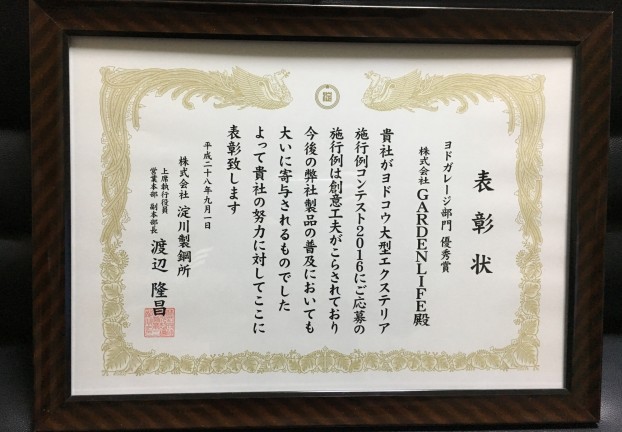 表彰状
ヨドガレージ部門 優秀賞
株式会社 GARDENLIFE殿
貴社がヨドコウ大型エクステリア
施行例コンテスト2016にご応募の
施行例は創意工夫がこらされており
今後の弊社製品の普及においても
大いに寄与されるものでした
よって貴社の努力に対してここに
表彰致します
平成二十八年九月一日
株式会社 淀川製鋼所
上席執行役員
営業本部 副本部長 渡辺 隆昌